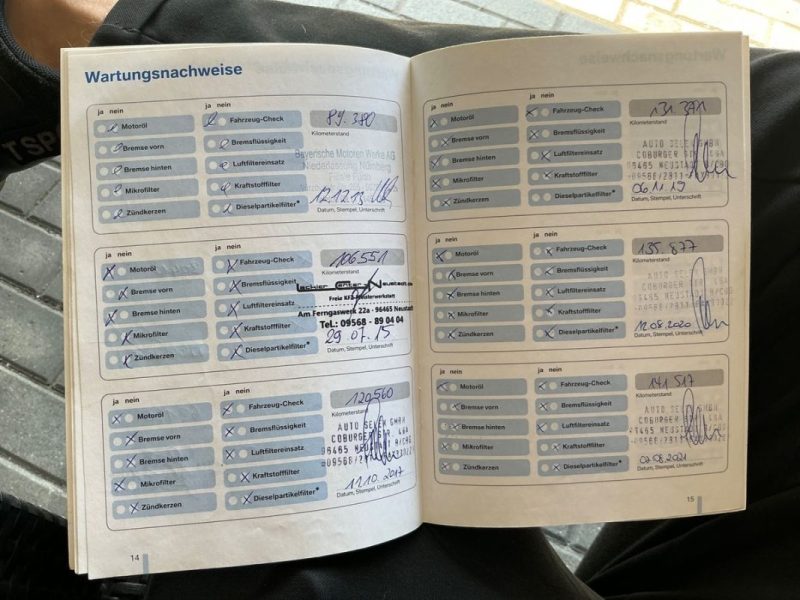 Wartungsnachweise
ja nein ja nein
Motoröl Fahrzeug-Check 89.380
Kilometerstand
Bremse vorn Bremsflüssigkeit
Bayerische Motoren Werke AG
Niederlassung Nürnberg
Bremse hinten Luftfiltereinsatz
Mikrofilter Kraftstofffilter
12.12.13
Zündkerzen Dieselpartikelfilter*
Datum, Stempel, Unterschrift
ja nein ja nein
Motoröl Fahrzeug-Check 106.551
Bremse vorn Bremsflüssigkeit
Lackier Center Neustadt
Freie KFZ-Meisterwerkstatt
Bremse hinten Luftfiltereinsatz
Am Ferngaswerk 22a - 96465 Neustadt
Tel.: 09568 - 89 04 04
Mikrofilter Kraftstofffilter
29.07.15
Zündkerzen Dieselpartikelfilter*
Datum, Stempel, Unterschrift
ja nein ja nein
Motoröl Fahrzeug-Check 120.560
Kilometerstand
Bremse vorn Bremsflüssigkeit
AUTO GMBH
COBURGER STR.
Bremse hinten Luftfiltereinsatz
Mikrofilter Kraftstofffilter
11.10.2017
Zündkerzen Dieselpartikelfilter*
Datum, Stempel, Unterschrift
14
ja nein ja nein
Motoröl Fahrzeug-Check 131.371
Kilometerstand
Bremse vorn Bremsflüssigkeit
AUTO GMBH
COBURGER STR.
Bremse hinten Luftfiltereinsatz
96465 NEUSTADT
Mikrofilter Kraftstofffilter
06.11.19
Zündkerzen Dieselpartikelfilter*
Datum, Stempel, Unterschrift
ja nein ja nein
Motoröl Fahrzeug-Check 135.877
Kilometerstand
Bremse vorn Bremsflüssigkeit
Bremse hinten Luftfiltereinsatz
Mikrofilter Kraftstofffilter
12.08.2020
Zündkerzen Dieselpartikelfilter*
Datum, Stempel, Unterschrift
ja nein ja nein
Motoröl Fahrzeug-Check 141.517
Kilometerstand
Bremse vorn Bremsflüssigkeit
Bremse hinten Luftfiltereinsatz
Mikrofilter Kraftstofffilter
02.08.2021
Zündkerzen Dieselpartikelfilter*
Datum, Stempel, Unterschrift
15